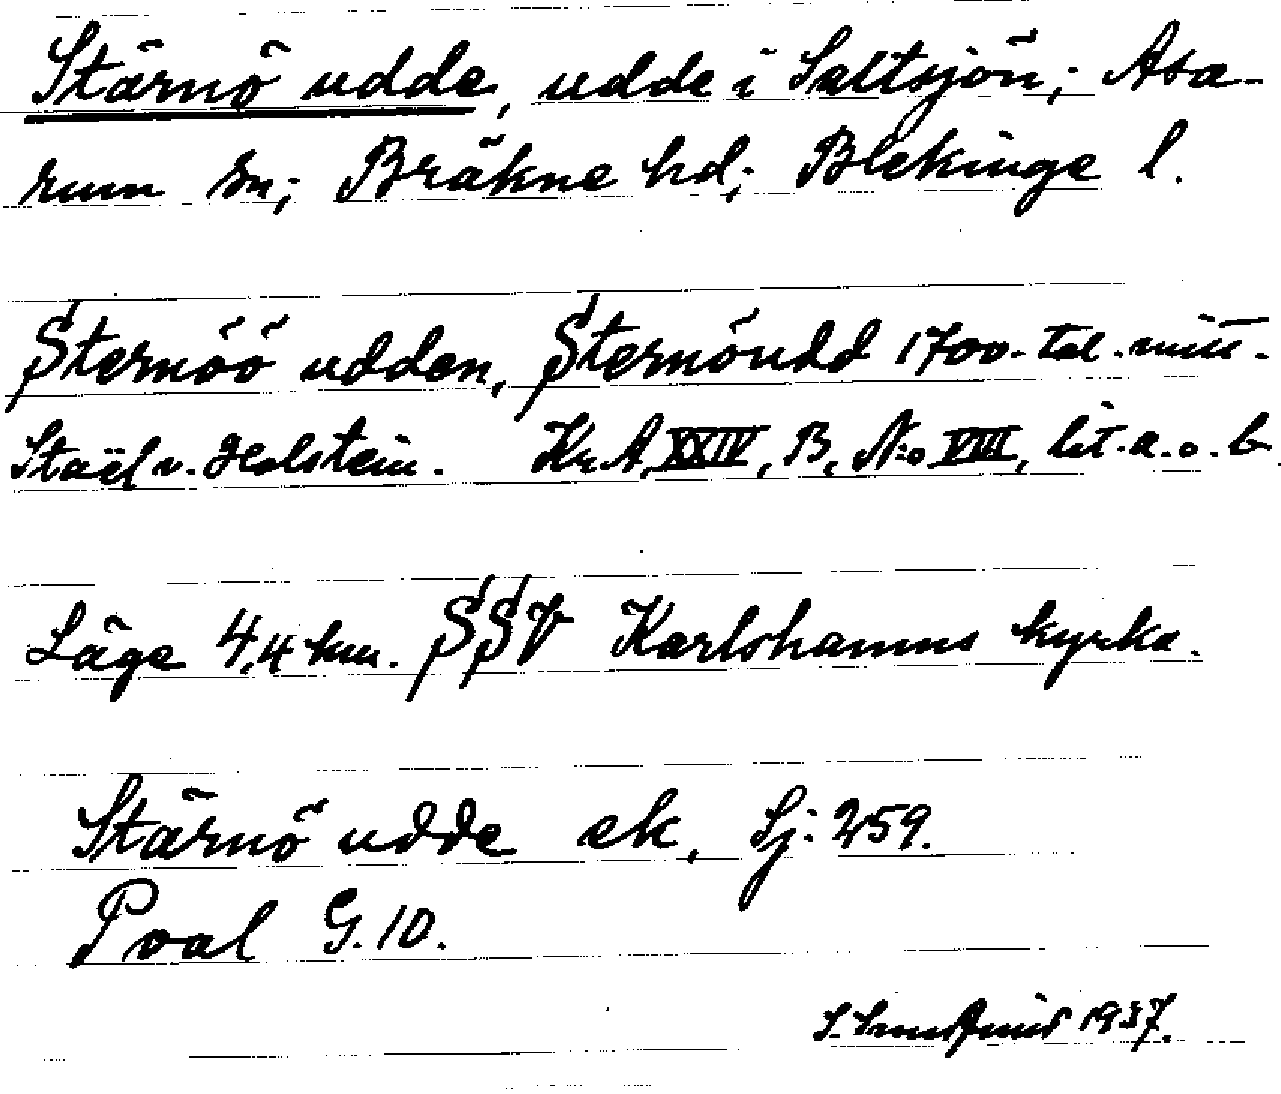 Stärnö udde, udde i Saltsjön; Asa-
rum sn; Bräkne hd; Blekinge l.
Sternöö udden, Sternöudd 1700-tal. mitt.
Staël v. Holstein. Kr. A. XXIV, B, N:o VIII, lit. a. o. b.
Läge 4,4 km. SSV Karlshamns kyrka.
Stärnö udde ek, Sj: 259.
P val G. 10.
1937.